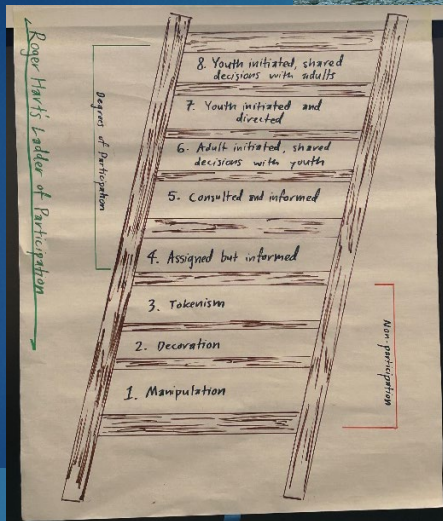 Roger Hart's Ladder of Participation
Degrees of Participation
8. Youth initiated, shared
decisions with adults
7. Youth initiated and
directed
6. Adult initiated, shared
decisions with youth
5. Consulted and informed
4. Assigned but informed
3. Tokenism
2. Decoration
1. Manipulation
Non-participation